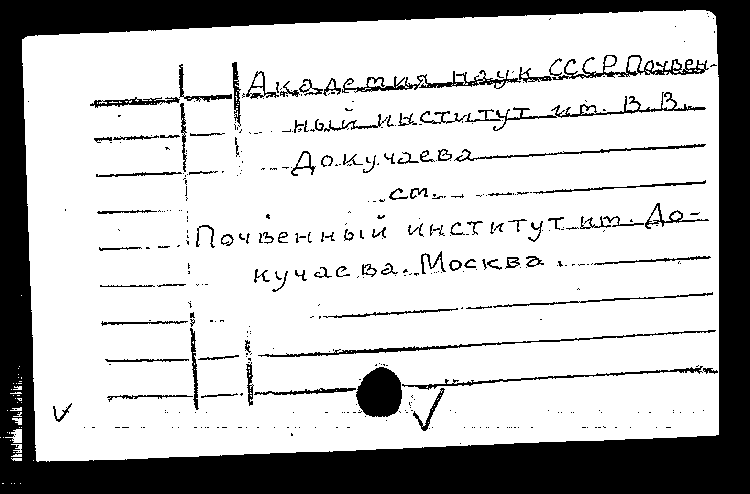 Академия наук СССР Почвен-
ный институт им. В.В.
Докучаева
см.
Почвенный институт им. До-
кучаева. Москва.